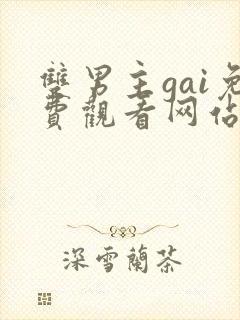 雙男主gai免
費觀看网佔
深雪蘭茶